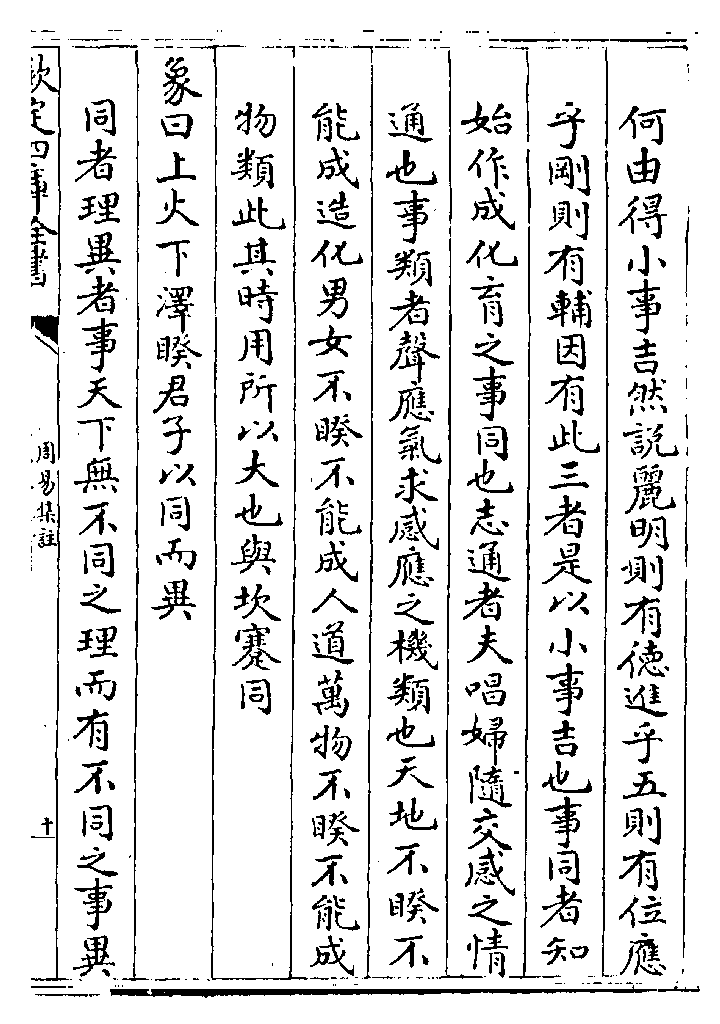 何由得小事吉然説麗明則有德進乎五則有位應
乎剛則有輔因有此三者是以小事吉也事同者知
始作成化育之事同也志通者夫唱婦隨交感之情
通也事類者聲應氣求感應之機類也天地不睽不
能成造化男女不睽不能成人道萬物不睽不能成
物類此其時用所以大也與坎蹇同
象曰上火下澤睽君子以同而異
同者理異者事天下無不同之理而有不同之事異
欽定四庫全書
周易集註
十